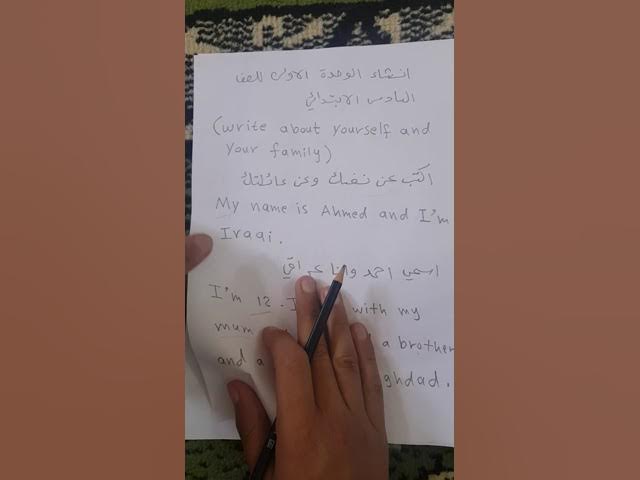 انشاء الوحدة الاولى للصف
السادس الابتدائي
(write about yourself and
your family)
اكتب عن نفسك وعن عائلتك
My name is Ahmed and I'm
Iraqi.
اسمي احمد وانا عراقي
I'm 12. I with my
mum a brother
and a ghdad.